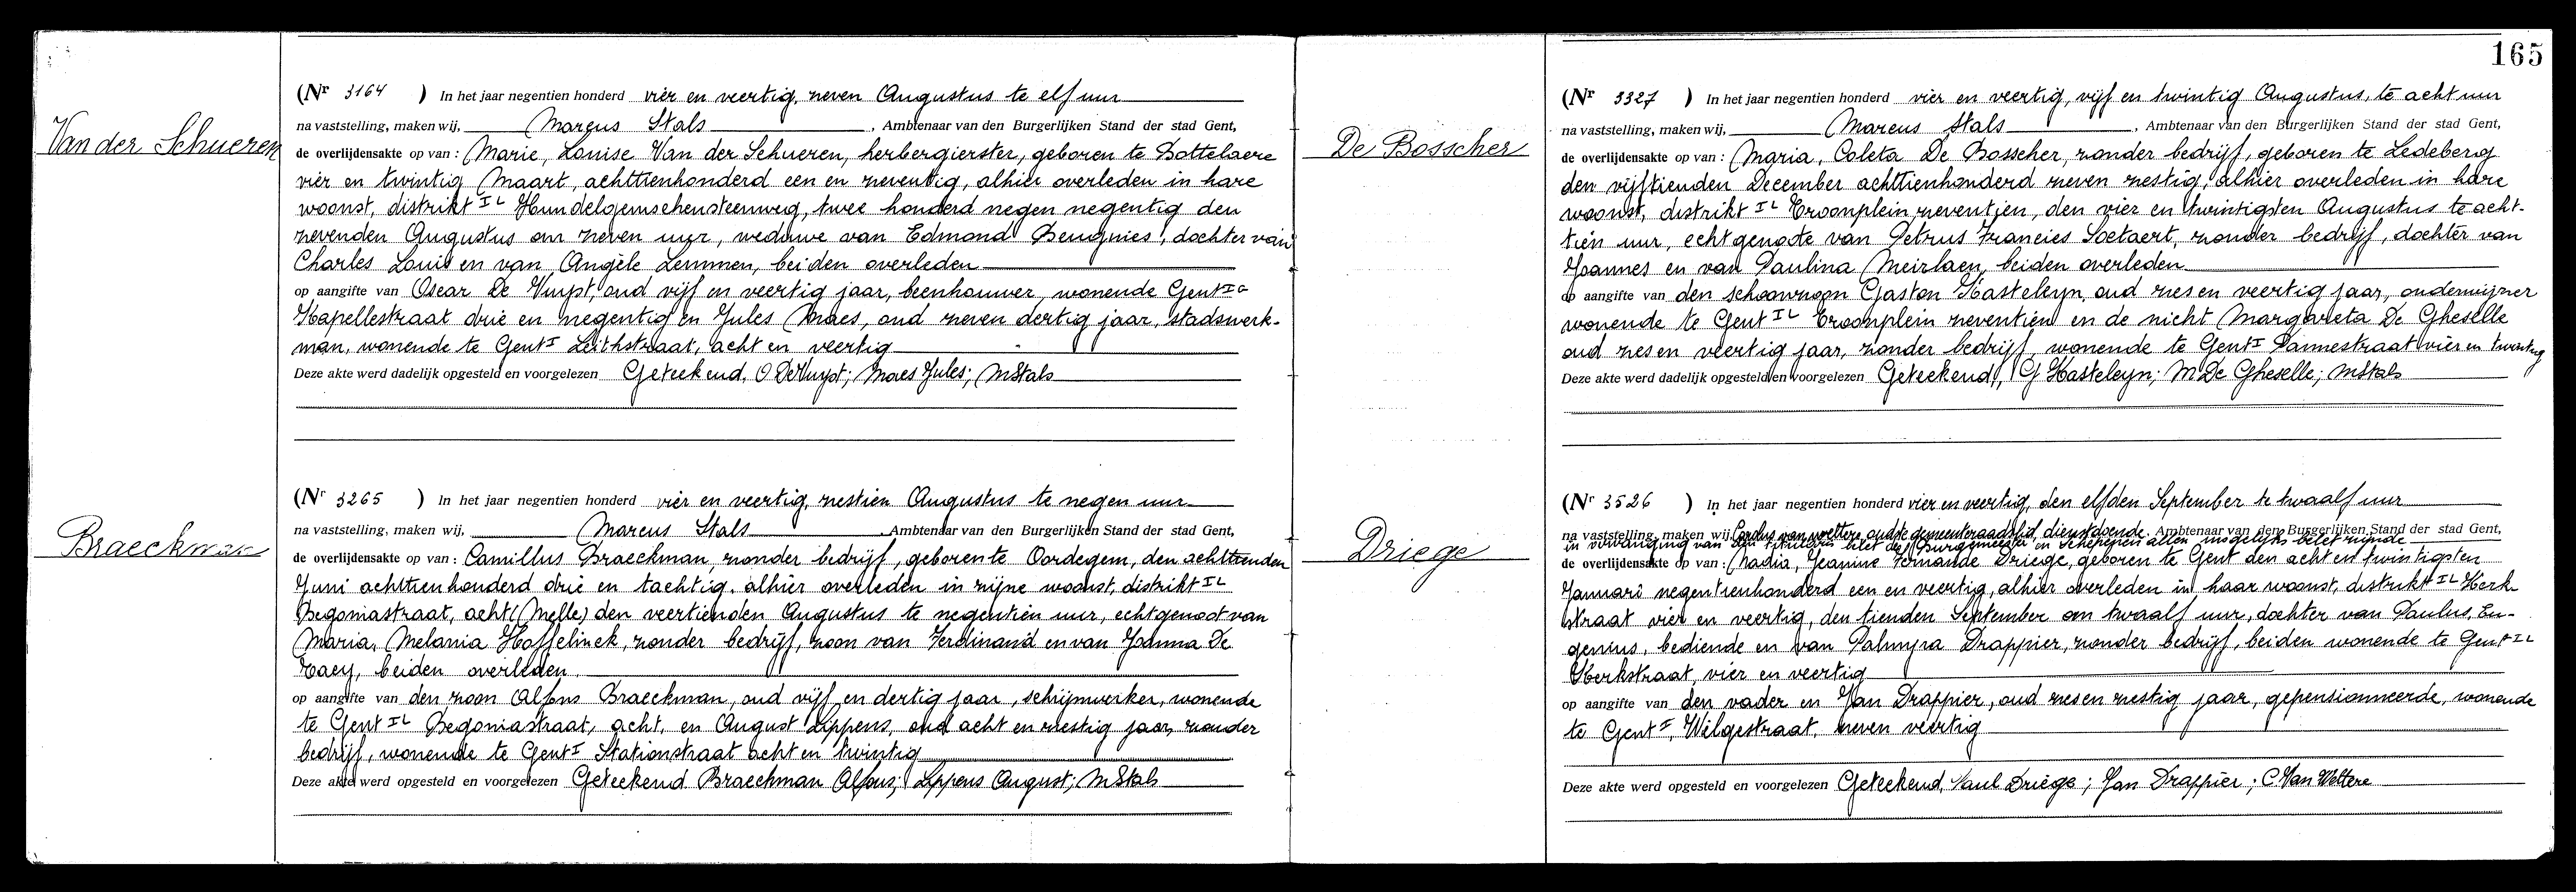 Van der Schueren
(Nr 3164 ) In het jaar negentien honderd vier en veertig, zeven Augustus te elf uur
na vaststelling, maken wij, Marcus Stals, Ambtenaar van den Burgerlijken Stand der stad Gent,
de overlijdensakte op van : Marie, Louise Van der Schueren, herbergierster, geboren te Bottelaere
vier en twintig Maart, achttienhonderd een en zeventig, alhier overleden in hare
woonst, distrikt IL Hundelgemschensteenweg, twee honderd negen negentig den
zevenden Augustus om zeven uur, weduwe van Edmond Beugnies, dochter van
Charles Louis en van Angèle Lemmen, beiden overleden
op aangifte van Oscar De Vuyst, oud vijf en veertig jaar, beenhouwer, wonende Gent IG
Kapellestraat drie en negentig en Jules Maes, oud zeven dertig jaar, stadswerk-
man, wonende te Gent I Leithstraat, acht en veertig
Deze akte werd dadelijk opgesteld en voorgelezen Geteekend, O DeVuyst; Maes Jules; MStals
Braeckman
(Nr 3265 ) In het jaar negentien honderd vier en veertig, zestien Augustus te negen uur
na vaststelling, maken wij, Marcus Stals, Ambtenaar van den Burgerlijken Stand der stad Gent,
de overlijdensakte op van : Camillus Braeckman, zonder bedrijf, geboren te Oordegem, den achttienden
Juni achttienhonderd drie en tachtig, alhier overleden in zijne woonst, distrikt IL
Begoniastraat, acht (Melle) den veertienden Augustus te negentien uur, echtgenoot van
Maria, Melania Hoffelinck, zonder bedrijf, zoon van Ferdinand en van Joanna De
Taey, beiden overleden.
op aangifte van den zoon Alfons Braeckman, oud vijf en dertig jaar, schijnwerker, wonende
te Gent IL Begoniastraat, acht, en August Lippens, oud acht en zestig jaar, zonder
bedrijf, wonende te Gent I Stationstraat acht en twintig
Deze akte werd opgesteld en voorgelezen Geteekend Braeckman Alfons; Lippens August; MStals
165
De Bosscher
(Nr 3327 ) In het jaar negentien honderd vier en veertig, vijf en twintig Augustus, te acht uur
na vaststelling, maken wij, Marcus Stals, Ambtenaar van den Burgerlijken Stand der stad Gent,
de overlijdensakte op van : Maria, Coleta De Bosscher, zonder bedrijf, geboren te Ledeberg
den vijftienden December achttienhonderd zeven zestig, alhier overleden in hare
woonst, distrikt IL Troonplein zeventien, den vier en twintigsten Augustus te acht-
tien uur, echtgenoote van Petrus Francies Soetaert, zonder bedrijf, dochter van
Joannes en van Paulina Meirlaen, beiden overleden
op aangifte van den schoonzoon Gaston Kasteleyn, oud zes en veertig jaar, onderwijzer
wonende te Gent IL Troonplein zeventien en de nicht Margareta De Gheselle
oud zes en veertig jaar, zonder bedrijf, wonende te Gent I Pannestraat vier en twintig
Deze akte werd dadelijk opgesteld en voorgelezen Geteekend, G Kasteleyn; M De Gheselle; MStals
Driege
(Nr 3526 ) In het jaar negentien honderd vier en veertig, den elfden September te twaalf uur
na vaststelling, maken wij Carolus van wettere, oudste gemeenteraadslid, dienstdoende Ambtenaar van den Burgerlijken Stand der stad Gent,
in vervanging van den titularis belet de Burgemeester en Schepenen allen insgelijks belet zijnde
de overlijdensakte op van : Nadia, Jeanine Fernande Driege, geboren te Gent den acht en twintigsten
Januari negentienhonderd een en veertig, alhier overleden in haar woonst, distrikt IL Kerk
straat vier en veertig, den tienden September om twaalf uur, dochter van Paulus, Eu-
genius, bediende en van Palmyra Drappier, zonder bedrijf, beiden wonende te Gent IL
Kerkstraat, vier en veertig
op aangifte van den vader en Jan Drappier, oud zes en zestig jaar, gepensionneerde, wonende
te Gent I, Wilgestraat, zeven veertig
Deze akte werd opgesteld en voorgelezen Geteekend, Paul Driège; Jan Drappier; C Van Wettere